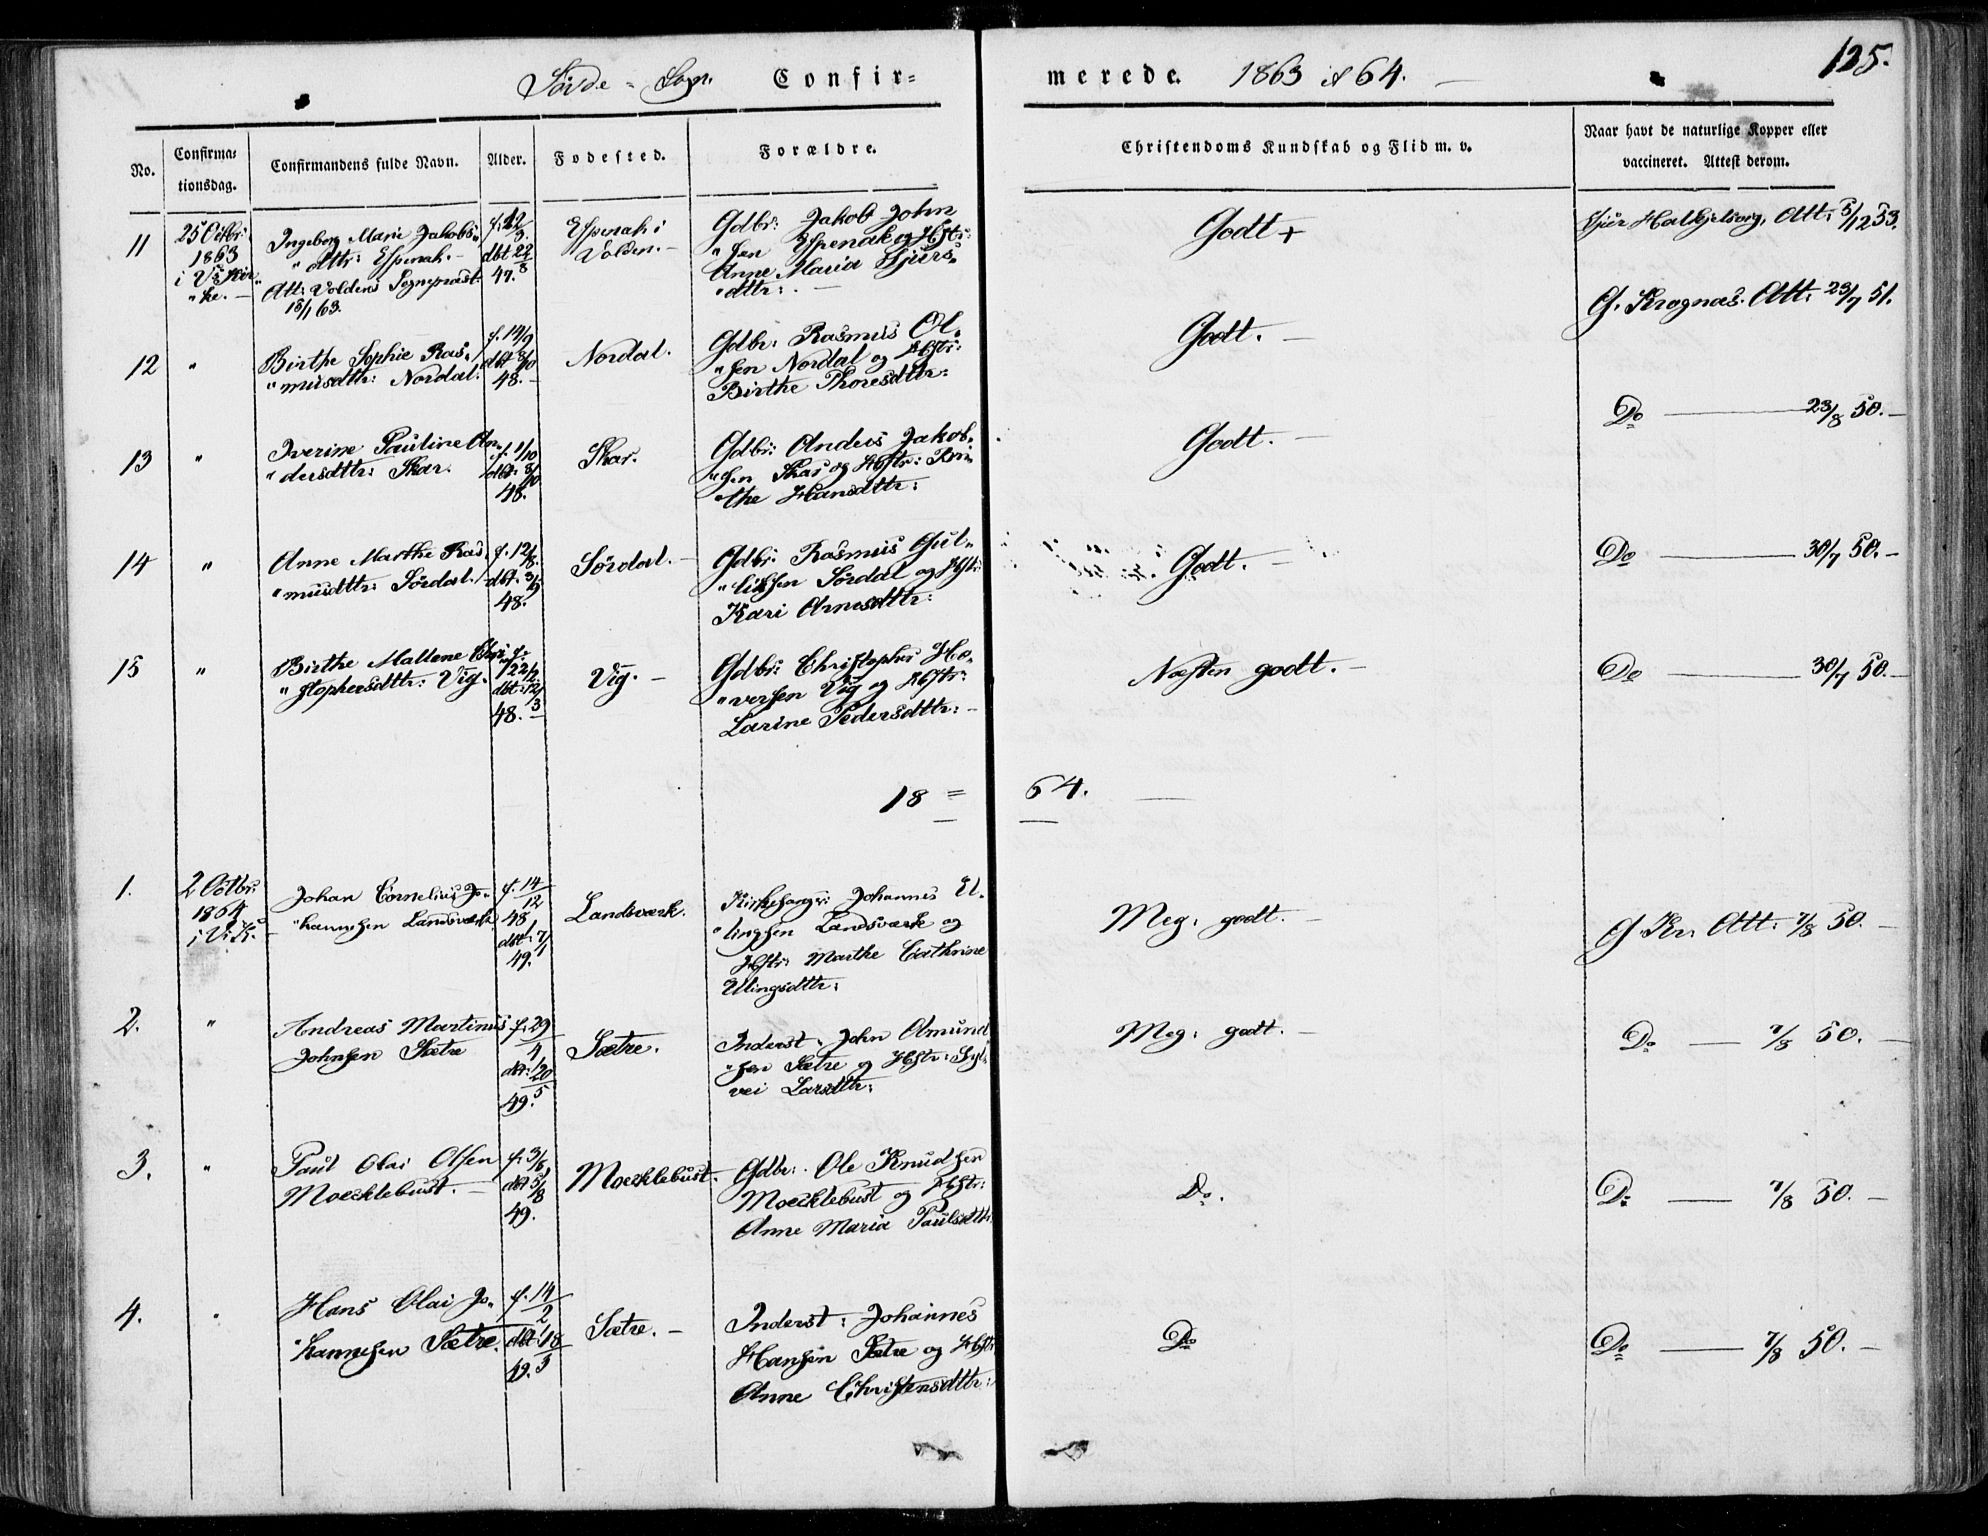 Sövde = Sogn. Confir-
merede. 1863 & 64.
125.
No.
Confirma-
tionsdag.
Confirmandens fulde Navn.
Alder.
Fodested.
Forældre.
Christendoms Kundskab og Flid m. v.
Naar havt de naturlige Kopper eller
vaccineret. Attest derom.
11
25 Octbr:
1863
Ingeborg Marie Jakobs-
"dttr: Espenak.
Att: Voldens Sognepræst:
18/1 63.
f. 22/3.
dbt 22/8
47.
Espenak i
Volden. -
Gdbr: Jakob John
"sen Espenak og Hstr:
Anne Maria Sjurs
"dttr:
Godt +
Att: 5/12 53.
12
"
Birthe Sophie Ras-
"musdttr: Nordal.
f. 14/9
dbt 8/10
48. -
Nordal.
Gdbr: Rasmus Ol-
"sen Nordal og Hstr:
Birthe Thoresdttr:
Godt. -
G. Kragnæs. Att: 23/7 51.
13
"
Iverine Pauline An-
"dersdttr: Skar.
f. 1/10
dbt. 8/10
48.
Skar.
Gdbr: Anders Jakob-
"sen Skar og Hstr: Bri
"the Hansdttr:
Godt. -
Do - 23/8 50. -
14
"
Anne Marthe Ras
"musdttr: Sördal.
f. 12/8.
dbt. 3/9
48.
Sördal. -
Gdbr: Rasmus Gul-
"liksen Sördal og Hstr:
Kari Arnesdttr:
Godt. -
Do - 30/7 50. -
15
"
Birthe Mallene Chri-
"stophersdttr: Vig.
f.
22/2
dbt. 12/3
48.
Vig. -
Gdbr: Christopher Ha-
"versen Vig og Hstr:
Larine Pedersdttr: -
Næsten godt. -
Do - 30/7 50. -
18 = 64.
1.
2 Octbr:
1864
i V. K. -
Johan Cornelius Jo-
"hannesen Landsværk.
f. 14/12
48
dbt. 7/1
49.
Landsværk.
Kirkesanger: Johannes El-
"lingsen Landsværk og
Hstr: Marthe Cathrine
Ellingsdttr:
Meg: godt. -
G. Kr. Att: 7/8 50. -
2.
"
Andreas Martinus
Johnsen Sætre
f. 29/4
dbt: 20/5
49.
Sætre.
Inderst: John Amund
"sen Sætre og Hstr: Syl-
vei Larsdttr:
Meg: godt. -
Do - 7/8 50. -
3.
"
Paul Olai Olsen
Moecklebust. -
f. 3/6
dbt 5/8
49.
Moecklebust.
Gdbr: Ole Knudsen
Moecklebust og Hstr:
Anne Maria Paulsdttr
Do.
Do - 7/8 50. -
4.
"
Hans Olai Jo-
"hannesen Sætre.
f. 14/2
dbt 18/3
49.
Sætre. -
Inderst: Johannes
Hansen Sætre og Hstr
Anne Christensdttr:
Do
Do - 7/8 50. -